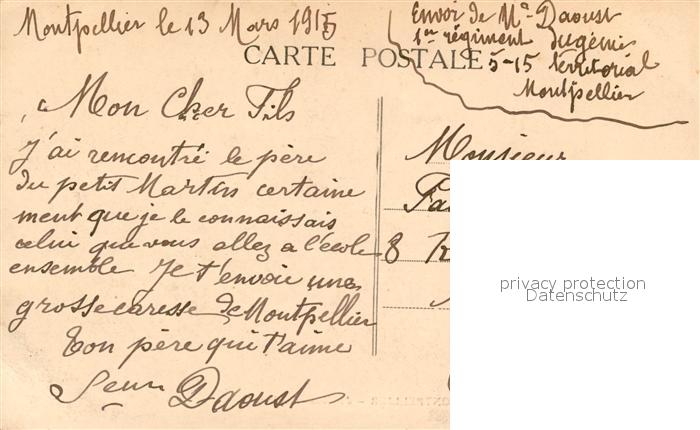 Montpellier le 13 Mars 1915
Envoi de Mr Daoust
1er régiment du génie
5-15 territorial
Montpellier
CARTE POSTALE
Mon Cher Fils
J'ai remontré le père
du petit Martin certaine
ment que je le connaissais
celui que vous allez a l'école
ensemble Je t'envoie une
grosse caresse de Montpellier
Ton père qui t'aime
Daoust
Monsieur
8
privacy protection
Datenschutz